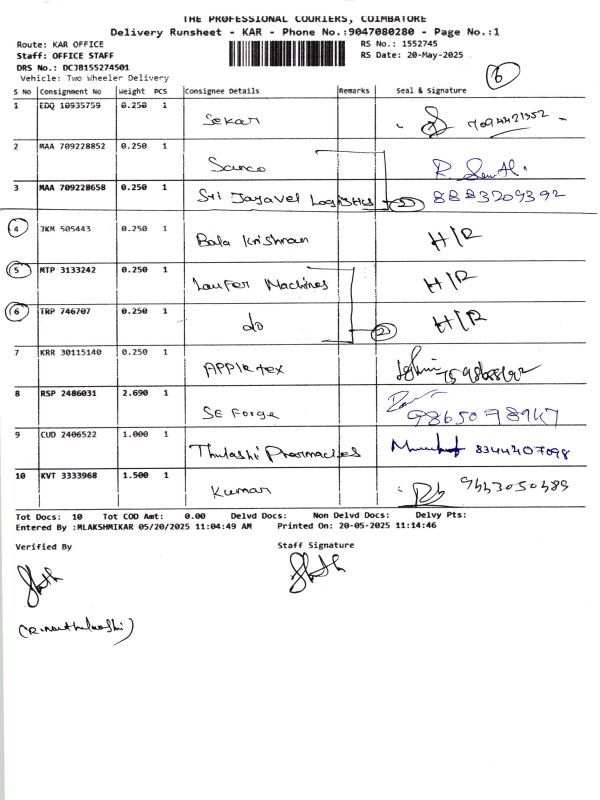 THE PROFESSIONAL COURIERS, COIMBATORE
Delivery Runsheet - KAR - Phone No.:9047080280 - Page No.:1
Route: KAR OFFICE
RS No.: 1552745
Staff: OFFICE STAFF
RS Date: 20-May-2025
DRS No.: DCJB155274501
Vehicle: Two Wheeler Delivery
6
S No Consignment No Weight PCS Consignee Details Remarks Seal & Signature
1 EDQ 10935759 0.250 1 Sekar
2 MAA 709228852 0.250 1 Sanco
3 MAA 709228658 0.250 1 Sri Jayavel Logistics 2 8883209392
4 JKM 505443 0.250 1 Bala Krishnan H/R
5 MTP 3133242 0.250 1 Laufer Machines H/R
6 TRP 746707 0.250 1 do 2 H/R
7 KRR 30115140 0.250 1 APPle tex
8 RSP 2486031 2.690 1 SE Forge
9 CUD 2406522 1.000 1 Thulashi Pharmacies 8344407098
10 KVT 3333968 1.500 1 Kumar
Tot Docs: 10 Tot COD Amt: 0.00 Delvd Docs: Non Delvd Docs: Delvy Pts:
Entered By :MLAKSHMIKAR 05/20/2025 11:04:49 AM Printed On: 20-05-2025 11:14:46
Verified By
Staff Signature